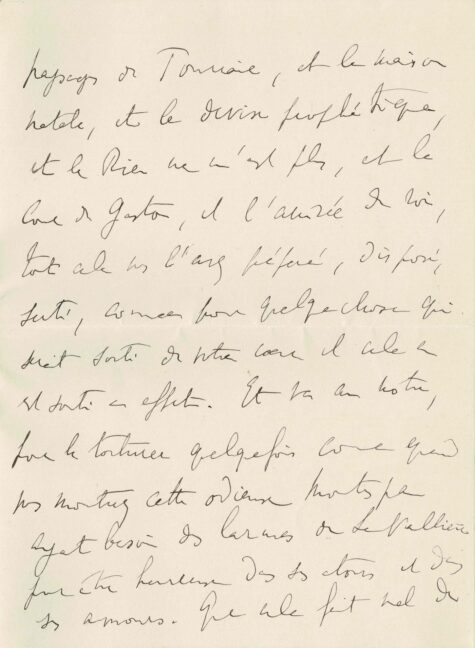 paysages de Touraine, et la maison
natale, et la devise prophétique,
et le Rien ne m'est plus, et la
Cour de Gaston, et l'arrivée du roi,
tout cela vous l'avez préparé, disposé,
senti, comme pour quelque chose qui
serait sorti de votre coeur et cela en
est sorti en effet. Et va au nôtre,
pour le torturer quelquefois comme quand
vous montrez cette odieuse Montespan
ayant besoin des larmes de La Vallière
pour être heureuse dans ses et dans
ses amours. Que cela fait mal de